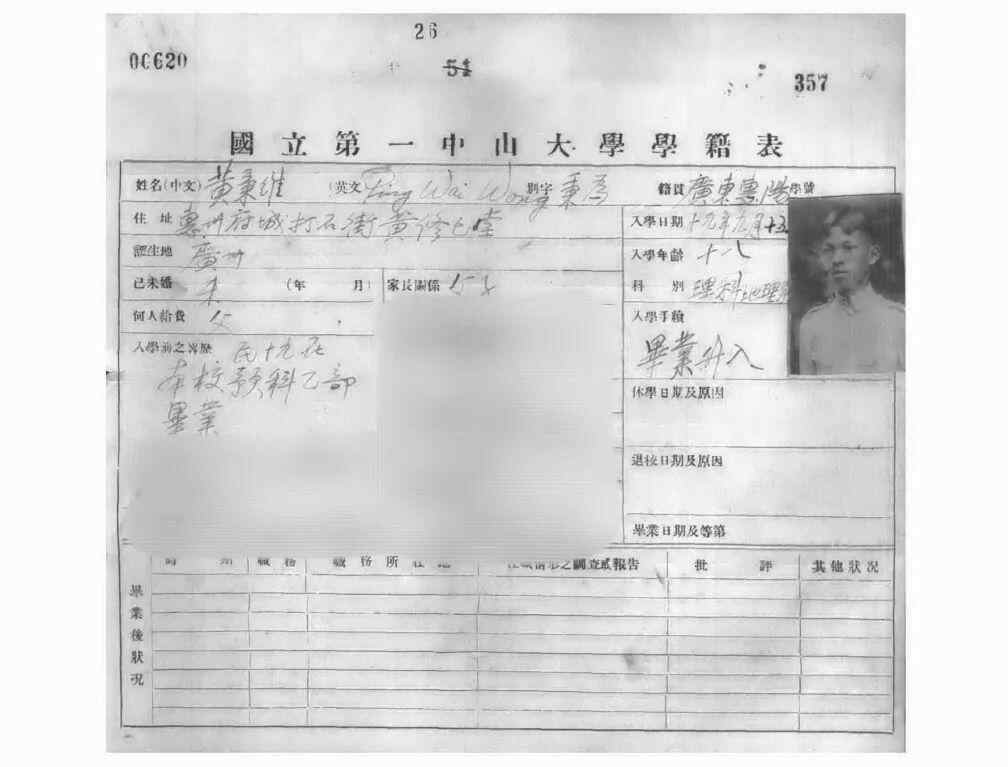 26
00620
54
357
國立第一中山大學學籍表
姓名(中文) 黃秉維 (英文) Ping Wai Wong 別字 秉為 籍貫 廣東惠陽 學號
住址 惠州府城打石街黃修己堂 入學日期 十九年九月十五
誕生地 廣州 入學年齡 十八
已未婚 未 (年 月) 家長關係 父子 科別 理科地理系
何人給費 父 入學手續
畢業升入
入學前之客歷 民十九在
本校預科乙部
畢業
休學日期及原因
退校日期及原因
畢業日期及等第
時期 職務 職務所在地 之調查或報告 批評 其他狀况
畢業後狀况